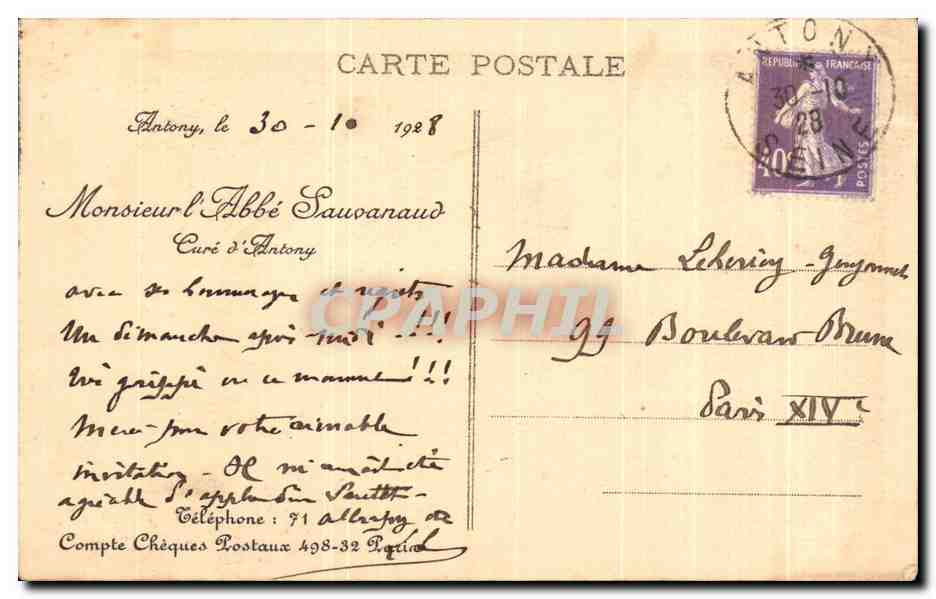 CARTE POSTALE
ANTONY
30 -10
28
SEINE
REPUBLIQUE FRANÇAISE
POSTES
Antony, le 30 - 10 1928
Monsieur l'Abbé Sauvanaud
Curé d'Antony
avec ses hommages et regrets
Un dimanche après midi !!!!
très grippé en ce moment !!!
Merci pour votre aimable
invitation - Il m'
agréable d'applaudir
Téléphone : 71
Compte Chèques Postaux 498-32 Paris
Madame Lehericy -
99 Boulevard Brune
Paris XIVe
CPARHIL